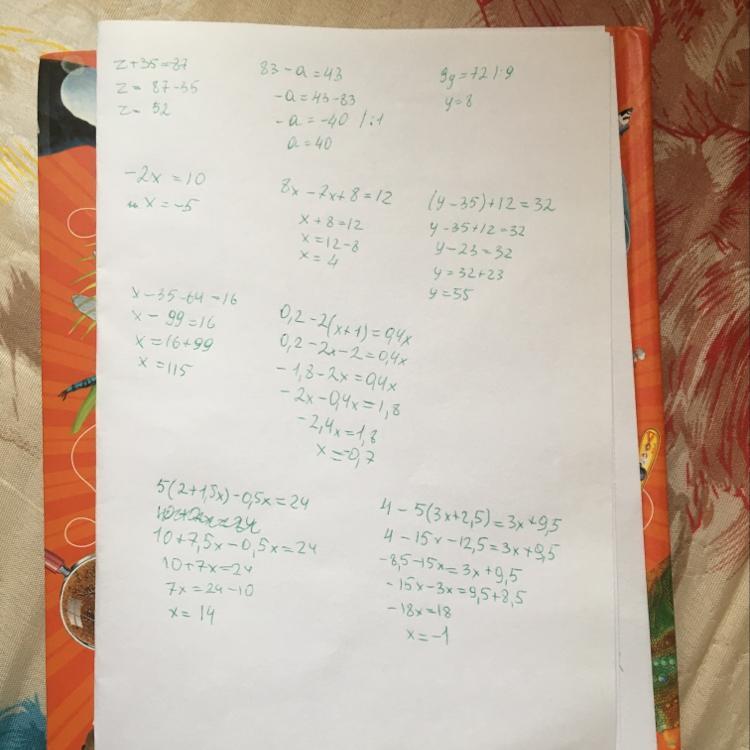 z+35=87
z= 87-35
z= 52
83-a=43
-a=43-83
-a=-40 /:1
a=40
9y=72 /:9
y=8
-2x=10
x=-5
8x-7x+8=12
x+8=12
x=12-8
x=4
(y-35)+12=32
y-35+12=32
y-23=32
y=32+23
y=55
x-35-64=16
x-99=16
x=16+99
x=115
0,2-2(x+1)=0,4x
0,2-2x-2=0,4x
-1,8-2x=0,4x
-2x-0,4x=1,8
-2,4x=1,8
x=-0,7
5(2+1,5x)-0,5x=24
10+7,5x-0,5x=24
10+7x=24
7x=24-10
x=14
4-5(3x+2,5)=3x+9,5
4-15x-12,5=3x+9,5
-8,5-15x=3x+9,5
-15x-3x=9,5+8,5
-18x=18
x=-1